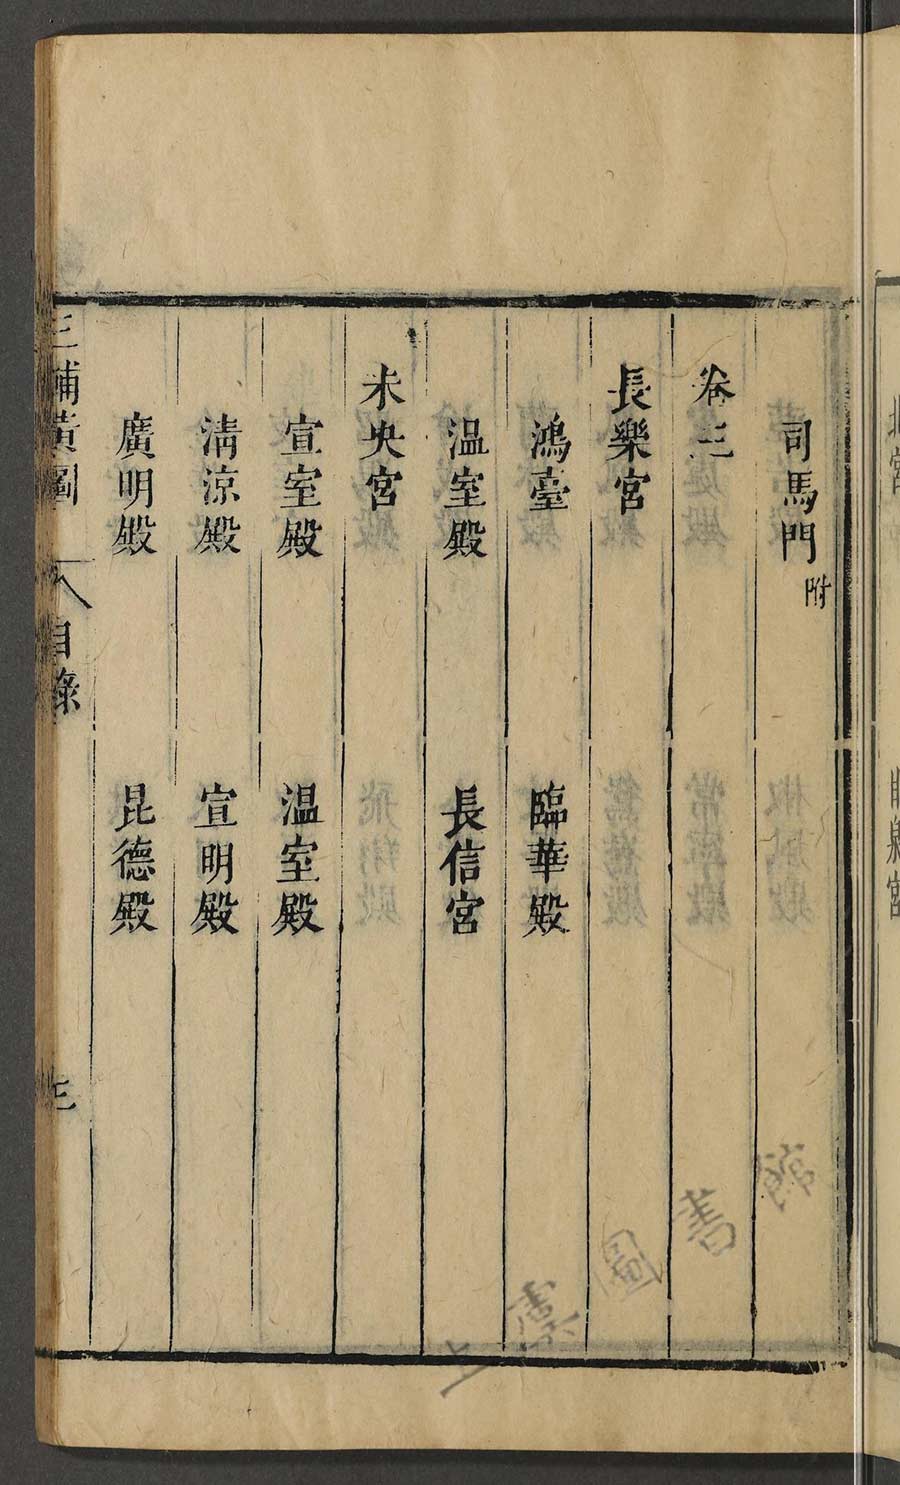 司馬門附
卷三
長樂宮
鴻臺　臨華殿
温室殿　長信宮
未央宮
宣室殿　温室殿
清涼殿　宣明殿
廣明殿　昆德殿
三輔黃圖　目錄　三
上虞圖書館
北宮